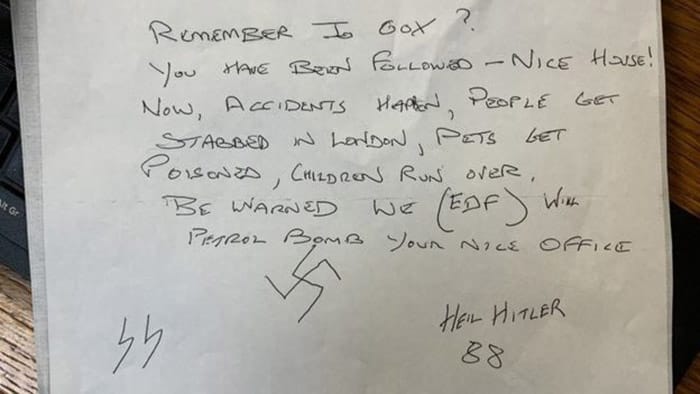 REMEMBER JO COX ?
YOU HAVE BEEN FOLLOWED – NICE HOUSE!
NOW, ACCIDENTS HAPPEN, PEOPLE GET
STABBED IN LONDON, PETS GET
POISONED, CHILDREN RUN OVER.
BE WARNED WE (EDF) WILL
PETROL BOMB YOUR NICE OFFICE
HEIL HITLER
88
Alt Gr